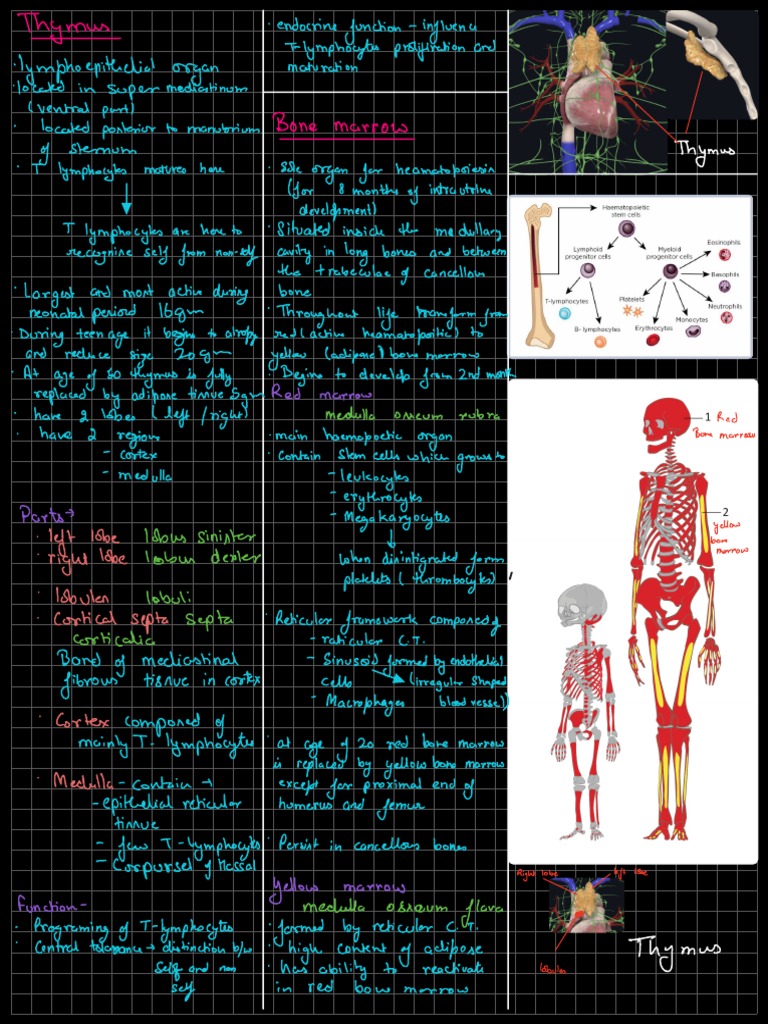 Thymus
· lymphoepithelial organ
· located in super mediastinum
(ventral part)
· located posterior to manubrium
of sternum
· T lymphocytes matures here
T lymphocytes are here to
recognise self from non-self
· Largest and most active during
neonatal period 16gm
During teen age it begins to atropy
and reduce size 20gm
· At age of 50 thymus is fully
replaced by adipose tissue 5gm
· have 2 lobes (left/right)
· have 2 regions
- cortex
- medulla
Parts→
· left lobe lobus sinister
· right lobe lobus dexter
· lobules lobuli
· Cortical septa septa
corticalia
Band of mediastinal
fibrous tissue in cortex
· Cortex composed of
mainly T-lymphocytes
· Medulla - contain →
- epithelial reticular
tissue
- few T-lymphocytes
- Corpursel of Hassal
Function-
· Programing of T-lymphocytes
· Central tolerance → distinction b/w
Self and non
self
· endocrine function - influence
T-lymphocytes proliferation and
maturation
Bone marrow
· Site organ for heamatopoiesis
(for 8 months of intrauterine
development)
· Situated inside the medullary
cavity in long bones and between
the trabeculae of cancellous
bone
· Throughout life transform from
red (active heamatopoitic) to
yellow (adipone) bone marrow
· Begins to develop from 2nd month
Red marrow
medulla osseum rubra
· main haemopoetic organ
· Contain stem cells which grows to
- leukocytes
- erythrocytes
- Megakaryocytes
when disintigrated form
platelets (thrombocytes)
· Reticular framework composed of
- raticular C.T.
- Sinusoid formed by endothelial
cells (irregular shaped
- Macrophages blood vessel))
· at age of 20 red bone marrow
is replaced by yellow bone marrow
except for proximal end of
humerus and femur
· Persist in cancellous bones
Yellow marrow
medulla osseum flava
· formed by reticular C.T.
· high content of adipose
· has ability to reactivate
in red bow marrow
Thymus
Haematopoietic
stem cells
Lymphoid
progenitor cells
Myeloid
progenitor cells
Eosinophils
Basophils
Neutrophils
Monocytes
Erythrocytes
Platelets
T-lymphocytes
B- lymphocytes
1 Red
Bone marrow
2
yellow
bone
marrow
Right lobe
left lobe
lobules
Thymus